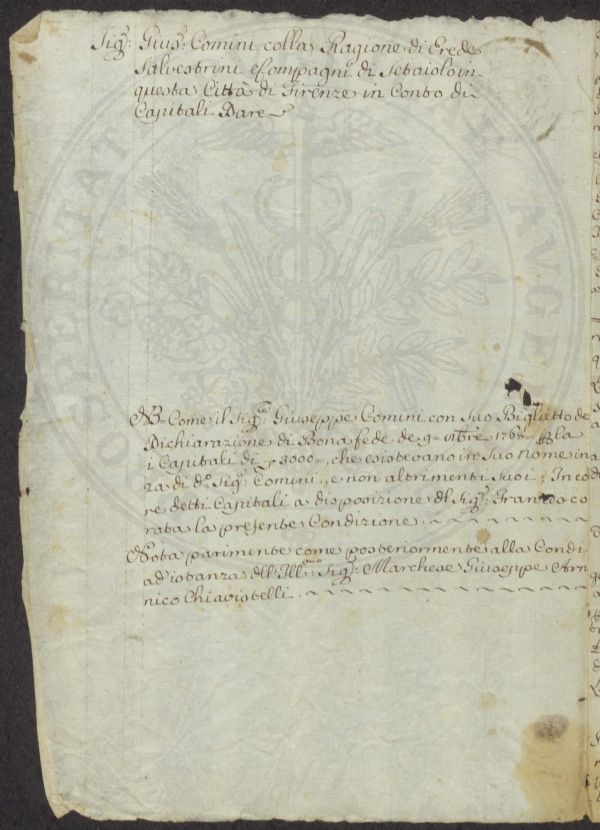 Sigr: Gius: Comini colla Ragione di Erede
Salvestrini e Compagni di Setaiolo in
questa Città di Firenze in Conto di
Capitali Dare
NB. Come il Sigre: Giuseppe Comini con suo Biglietto de
Dichiarazione di Bona fede de 9 9bre 1765 la
i Capitali di 3000, che esistevano in suo nome in a
za di do: Sigr: Comini, e non altrimenti suoi; In co
re detti Capitali a disposizione del Sigr: Francesco
rata la presente Condizione
Nota parimente come posteriormente alla Condi
ad istanza dell'Illmo: Sigr: Marchese Giuseppe Arn
nico Chiavistelli
PROSPERITAT AVGE